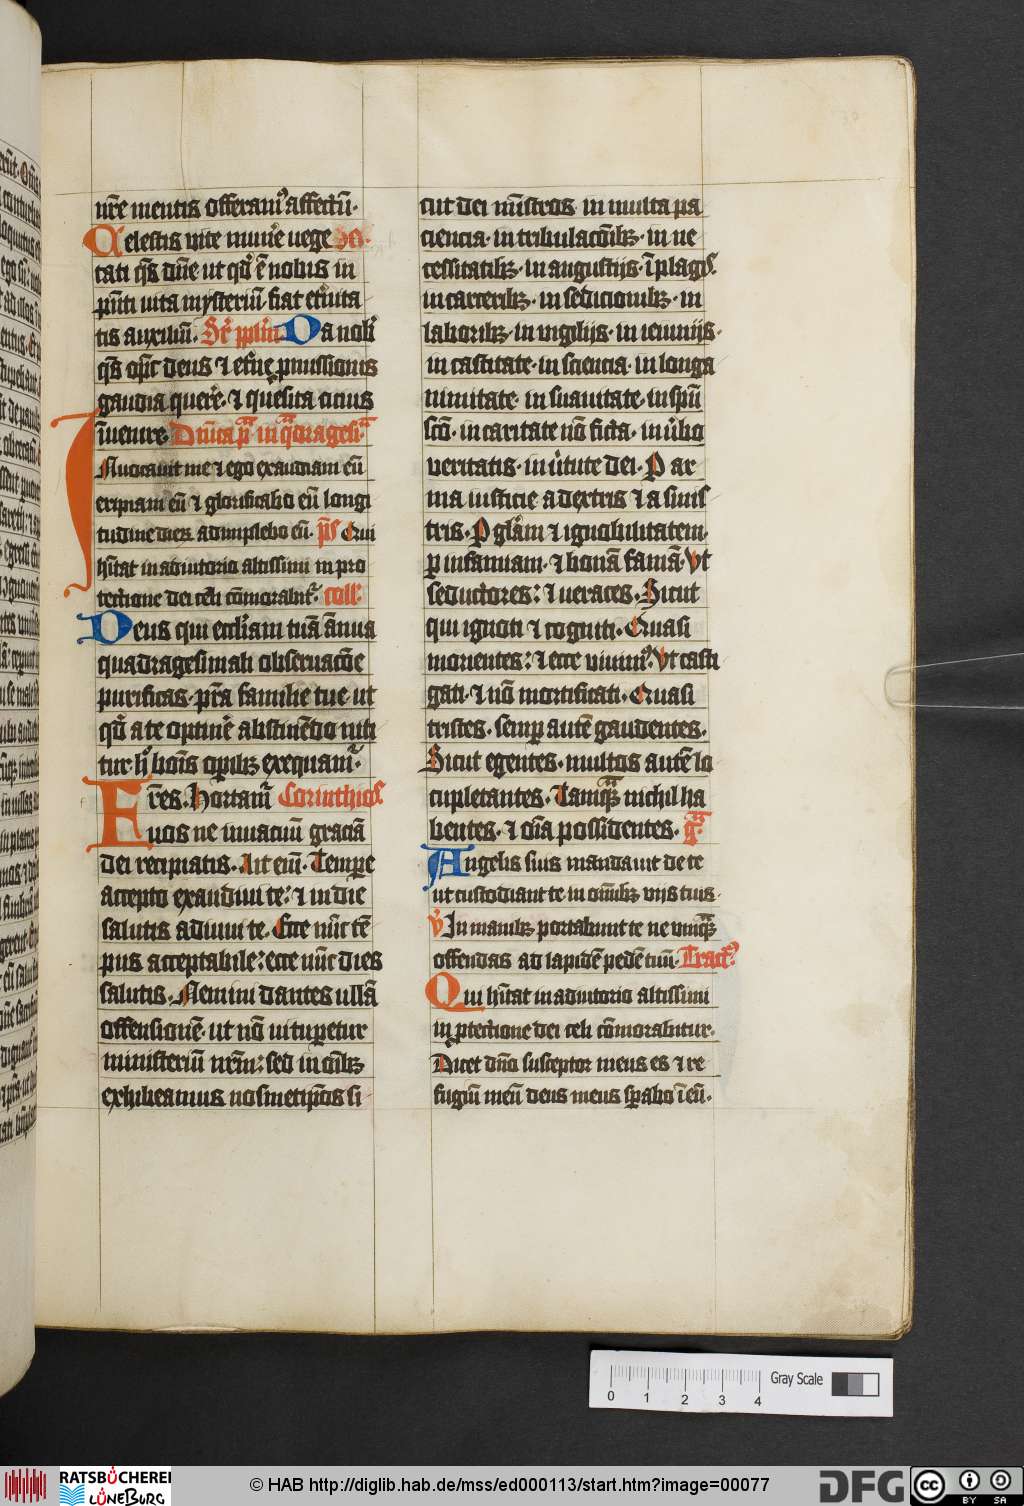 nr̄e mentis offeram᷒ affectū·
Celestis vite mun̄e uege
tati qs̄ dn̄e ut qd̓ ē nobis in
pn̄ti vita mysteriū fiat et̄nita
tis auxiliū. Sr̄ pplm̄. Da nob̄
qs̄ opī̄c deus ⁊ et̄ne pmissionis
gaudia quer̄e· ⁊ quesita citius
īuenire. Dn̄ica p̄ͣ in q̄ͣdragesī̄ͣ
INuocauit me ⁊ ego exaudiam eū
eripiam eū ⁊ glorificabo eū longi
tudine dieꝝ adimplebo eū. p̄s Qui
hītat in adiutorio altissimi in pro
tectione dei celi cōmorabit᷑. coll̄
Deus qui eccl̄iam tuā ānua
quadragesimali obseruacōe
purificas· pr̄a familie tue ut
qd̓ a te optiner̄e abstinēdo niti
tur· h̓ bonis opibꝫ exequam᷑·
Fr̄es. Hortam᷑ Corinthios.
uos ne in uacuū graciā
dei recipiatis. Ait eim̄. Tempe
accepto exaudiui te: ⁊ in die
salutis adiuui te. Ecce nūc tē
pus acceptabile: ecce nūc dies
salutis. Nemini dantes ullā
offensionē· ut nō uituperetur
ministeriū nr̄m: sed in oībꝫ
exhibeamus nosmetip̄os si
cut dei mīstros in multa pa
ciencia· in tribulacōibꝫ· in ne
cessitatibꝫ· in angustijs· ī plagis.
in carceribꝫ· in sedicionibꝫ· in
laboribꝫ· in vigilijs· in ieiunijs·
in castitate· in sciencia· in longa
nimitate· in suauitate· in spū
scō· in caritate nō ficta· in v̓bo
veritatis· in v̓tute dei. Per ar
ma iusticie a dextris ⁊ a sinis
tris. Per glām ⁊ ignobilitatem.
ꝑ infamiam· ⁊ bonā famā. Vt
seductores: ⁊ ueraces. Sicut
qui ignoti ⁊ cogniti. Quasi
morientes: ⁊ ecce viuim᷒. Vt casti
gati· ⁊ nō mortificati. Quasi
tristes· semꝑ autē gaudentes.
Sicut egentes· multos autē lo
cupletantes. Tamq̄ͣ nichil ha
bentes· ⁊ oīa possidentes. ḡͣ.
Angelis suis mandauit de te
ut custodiant te in om̄ibꝫ vijs tuis.
V̓ In manibꝫ portabunt te ne vmq̄ͣ
offendas ad lapidē pedē tuū. Tract᷒
Qui hītat in adiutorio altissimi
in ꝓtectione dei celi cōmorabitur.
Dicet dn̄o susceptor meus es ⁊ re
fugiū meū deus meus sꝑabo ī eū.
0 1 2 3 4
Gray Scale
RATSBÜCHEREI LÜNEBURG
© HAB http://diglib.hab.de/mss/ed000113/start.htm?image=00077
DFG
CC BY SA